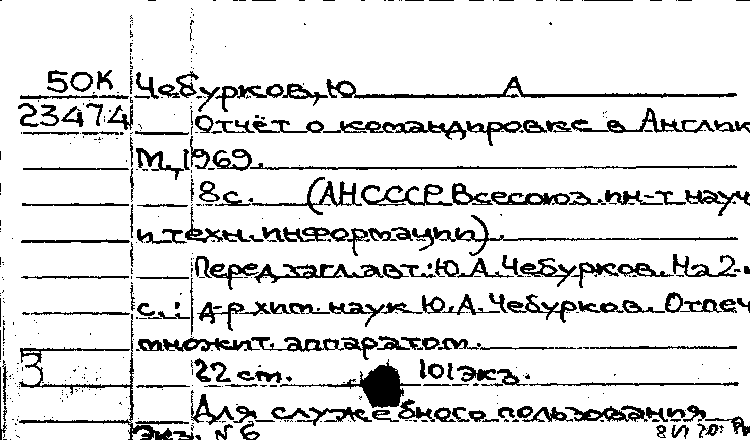 50К Чебурков, Ю А
23474 Отчёт о командировке в Англи
М., 1969.
8 с. (АН СССР. Всесоюз. ин-т науч
и техн. информации).
Перед загл. авт.: Ю. А. Чебурков. На 2-
с.: д-р хим. наук Ю. А. Чебурков. Отпеч
множит. аппаратом.
3 22 см. 101 экз.
Для служебного пользования
Экз. № 6